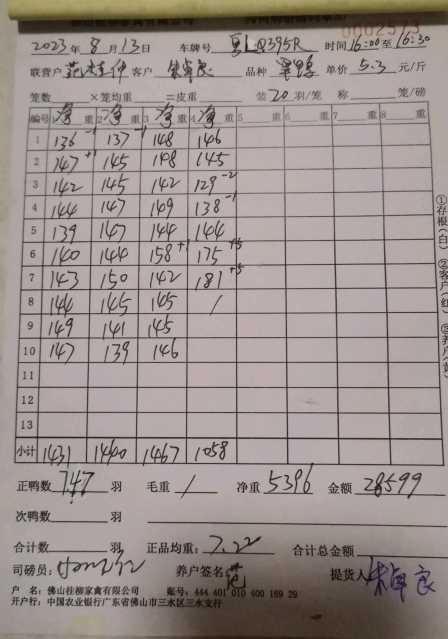 0002573
2023年8月13日 车牌号 粤LQ395R 时间16:00至16:30
联营户 客户 品种 单价5.3元/斤
笼数 ×笼均重 =皮重 装20羽/笼 称 笼/磅
编号 1净重 2净重 3净重 4净重 5 重 6 重 7 重 8 重
1 136 -1 137 -1 148 146
2 147 +1 145 148 145
3 142 145 142 129 -2
4 144 147 149 138 -1
5 139 147 144 144
6 140 144 158 +1 175 +5
7 143 150 142 181 +5
8 144 145 145 /
9 149 141 145
10 147 139 146
11
12
13
小计 1431 1440 1467 1058
正鸭数 747 羽 毛重 / 净重 5396 金额 28599
次鸭数 羽
合计数 羽 正品均重: 7.22 合计总金额
司磅员: 养户签名: 范 提货人: 朱卓良
户 名: 佛山桂柳家禽有限公司 账号: 444 401 010 400 169 29
开户行: 中国农业银行广东省佛山市三水区三水支行
①存根(白) ②客户(红) ③养户(黄)